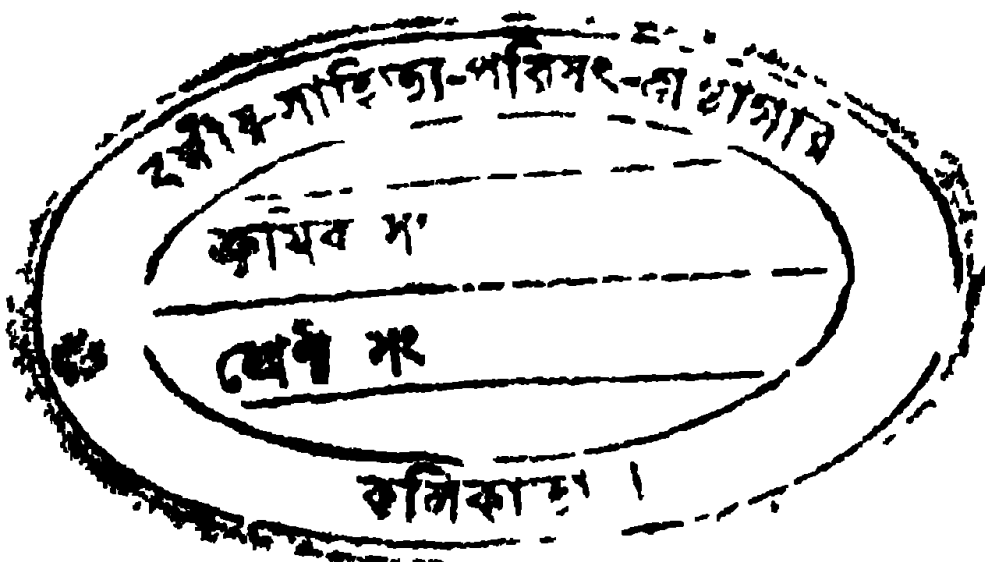 বঙ্গীয়-সাহিত্য-পরিষৎ-গ্রন্থাগার
ক্রমিক সং
শ্রেণী সং
কলিকাতা।